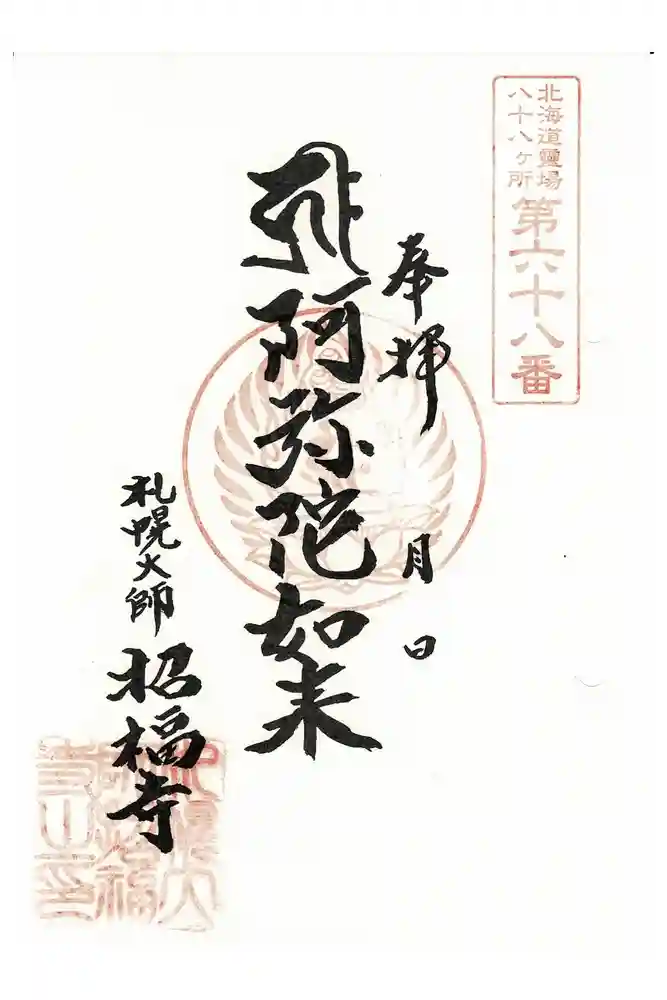 北海道靈場
八十八ヶ所
第六十八番
奉拝
月 日
阿弥陀如来
札幌大師
招福寺